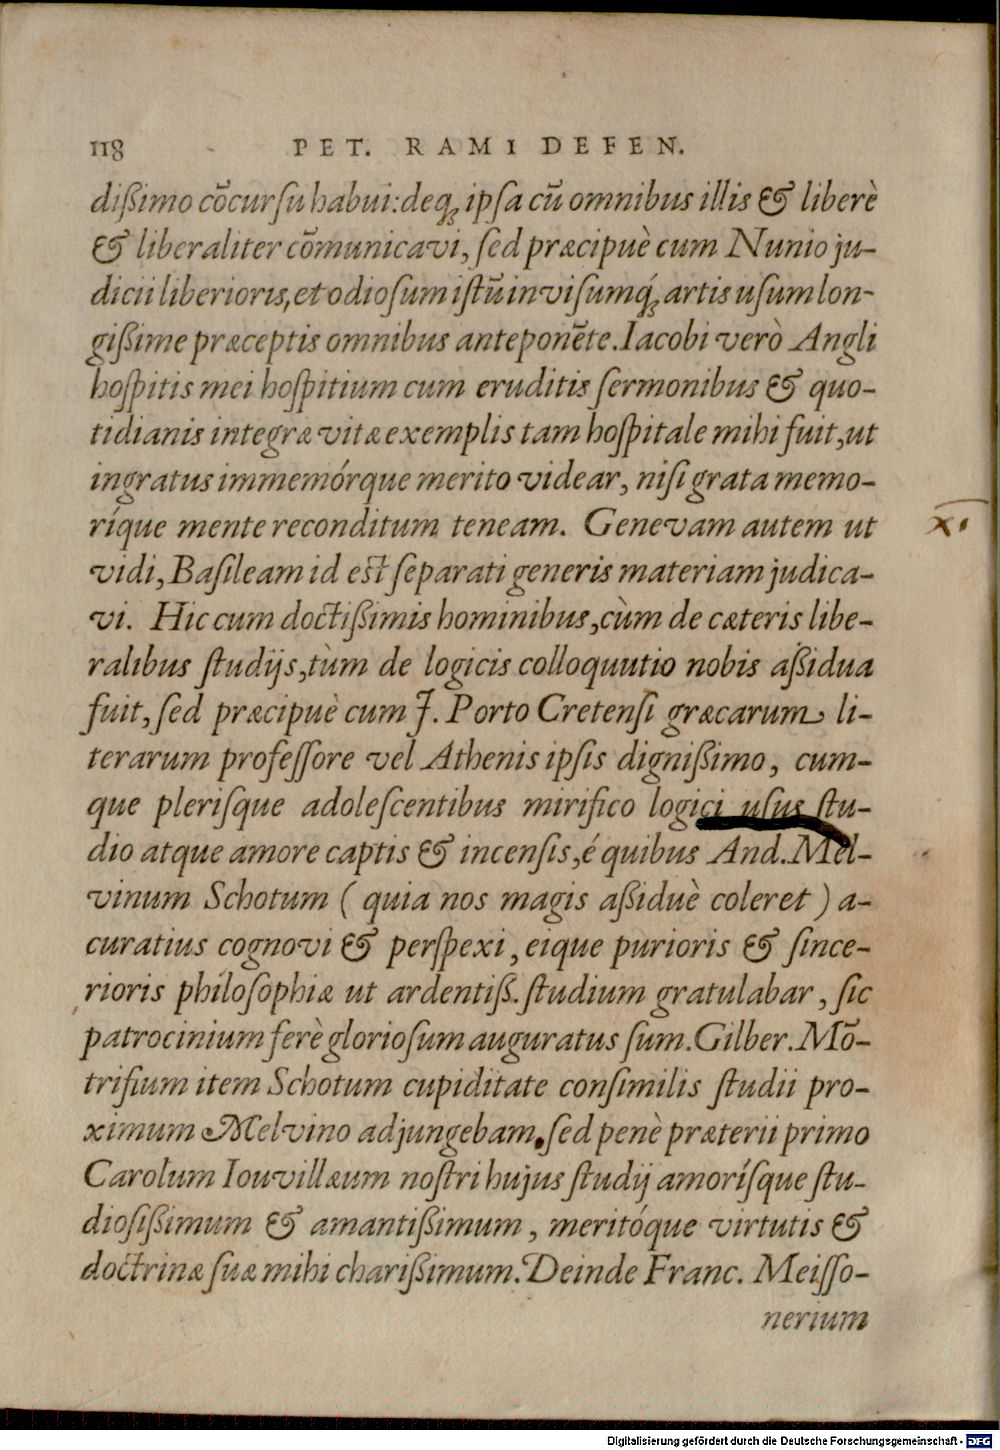 118 PET. RAMI DEFEN.
dißimo cõcursu habui: deq́ꝫ ipsa cũ omnibus illis & liberè
& liberaliter cõmunicavi, sed præcipuè cum Nunio ju-
dicii liberioris, et odiosum istũ invisumq́ꝫ artis usum lon-
gißime præceptis omnibus anteponẽte. Iacobi verò Angli
hospitis mei hospitium cum eruditis sermonibus & quo-
tidianis integræ vitæ exemplis tam hospitale mihi fuit, ut
ingratus immemórque merito videar, nisi grata memo-
ríque mente reconditum teneam. Genevam autem ut
xi
vidi, Basileam id est separati generis materiam judica-
vi. Hic cum doctißimis hominibus, cùm de cæteris libe-
ralibus studijs, tùm de logicis colloquutio nobis aßidua
fuit, sed præcipuè cum J. Porto Cretensi græcarum li-
terarum professore vel Athenis ipsis dignißimo, cum-
que plerisque adolescentibus mirifico logici usus stu-
dio atque amore captis & incensis, é quibus And. Mel-
vinum Schotum ( quia nos magis aßiduè coleret ) a-
curatius cognovi & perspexi, eique purioris & since-
rioris philosophiæ ut ardentiß. studium gratulabar, sic
patrocinium ferè gloriosum auguratus sum. Gilber. Mõ-
trisium item Schotum cupiditate consimilis studii pro-
ximum Melvino adjungebam. sed penè præterii primo
Carolum Iouvillæum nostri hujus studij amorísque stu-
diosißimum & amantißimum, meritóque virtutis &
doctrinæ suæ mihi charißimum. Deinde Franc. Meisso-
nerium
Digitalisierung gefördert durch die Deutsche Forschungsgemeinschaft - DFG